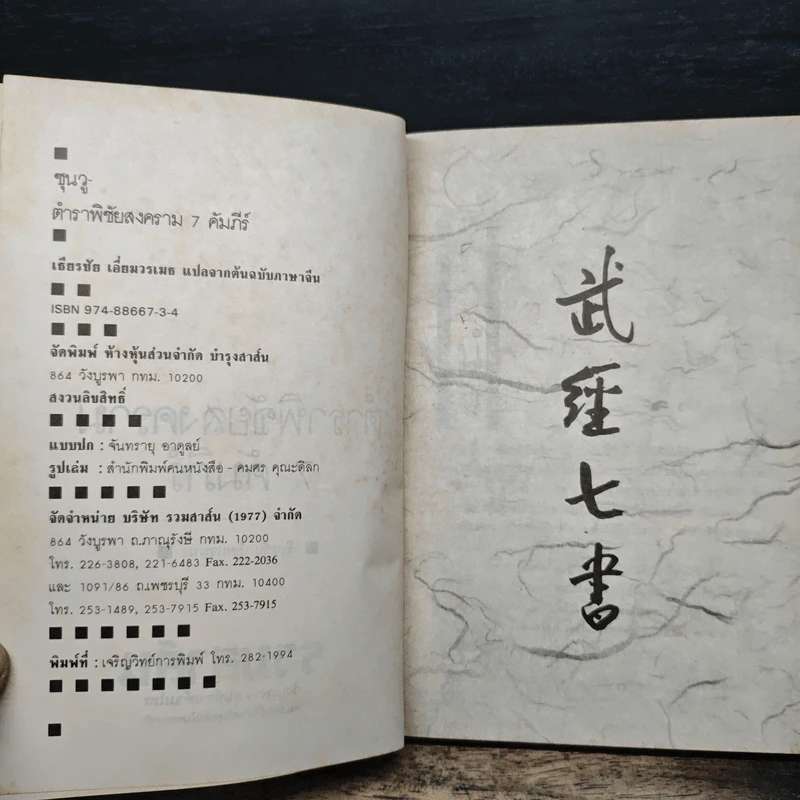 ซุนวู-
ตำราพิชัยสงคราม 7 คัมภีร์
เธียรชัย เอี่ยมวรเมธ แปลจากต้นฉบับภาษาจีน
ISBN 974-88667-3-4
จัดพิมพ์ ห้างหุ้นส่วนจำกัด บำรุงสาส์น
864 วังบูรพา กทม. 10200
สงวนลิขสิทธิ์
แบบปก : จันทรายุ อาดูลย์
รูปเล่ม : สำนักพิมพ์คนหนังสือ - คมศร คุณะดิลก
จัดจำหน่าย บริษัท รวมสาส์น (1977) จำกัด
864 วังบูรพา ถ.ภาณุรังษี กทม. 10200
โทร. 226-3808, 221-6483 Fax. 222-2036
และ 1091/86 ถ.เพชรบุรี 33 กทม. 10400
โทร. 253-1489, 253-7915 Fax. 253-7915
พิมพ์ที่ : เจริญวิทย์การพิมพ์ โทร. 282-1994
武經七書